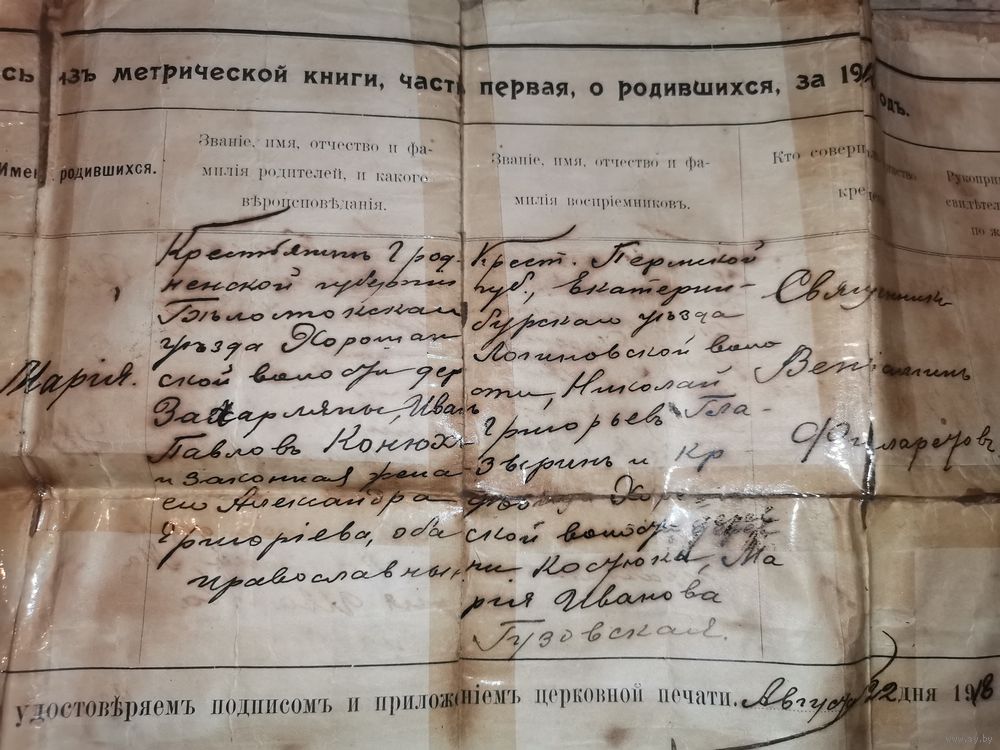 сь изъ метрической книги, часть первая, о родившихся, за 19
одъ.
Имен родившихся.
Званіе, имя, отчество и фа-
милія родителей, и какого
вѣроисповѣданія.
Званіе, имя, отчество и фа-
милія воспріемниковъ.
Кто соверш
кре
Рукопри
свидѣтел
по ж
Марія.
Крестьянинъ Грод-
ненской губерніи
Бѣлостокскаго
уѣзда Хорощан
ской волости дер
Захарляны, Иванъ
Павловъ Конюх
и законная жена
его Александра
Григоріева, оба
православны
Крест. Пермской
губ., Екатерин-
бурскаго уѣзда
Логиновской воло
сти, Николай
Григорьевъ Гла-
Звѣринъ и кр
ской волости дерев
ни Костюки, Ма
рія Иванова
Гузовская.
Священникъ
Веніаминъ
Филаретовъ
удостовѣряемъ подписомъ и приложеніемъ церковной печати. Августа 22 дня 1918
www.ay.by